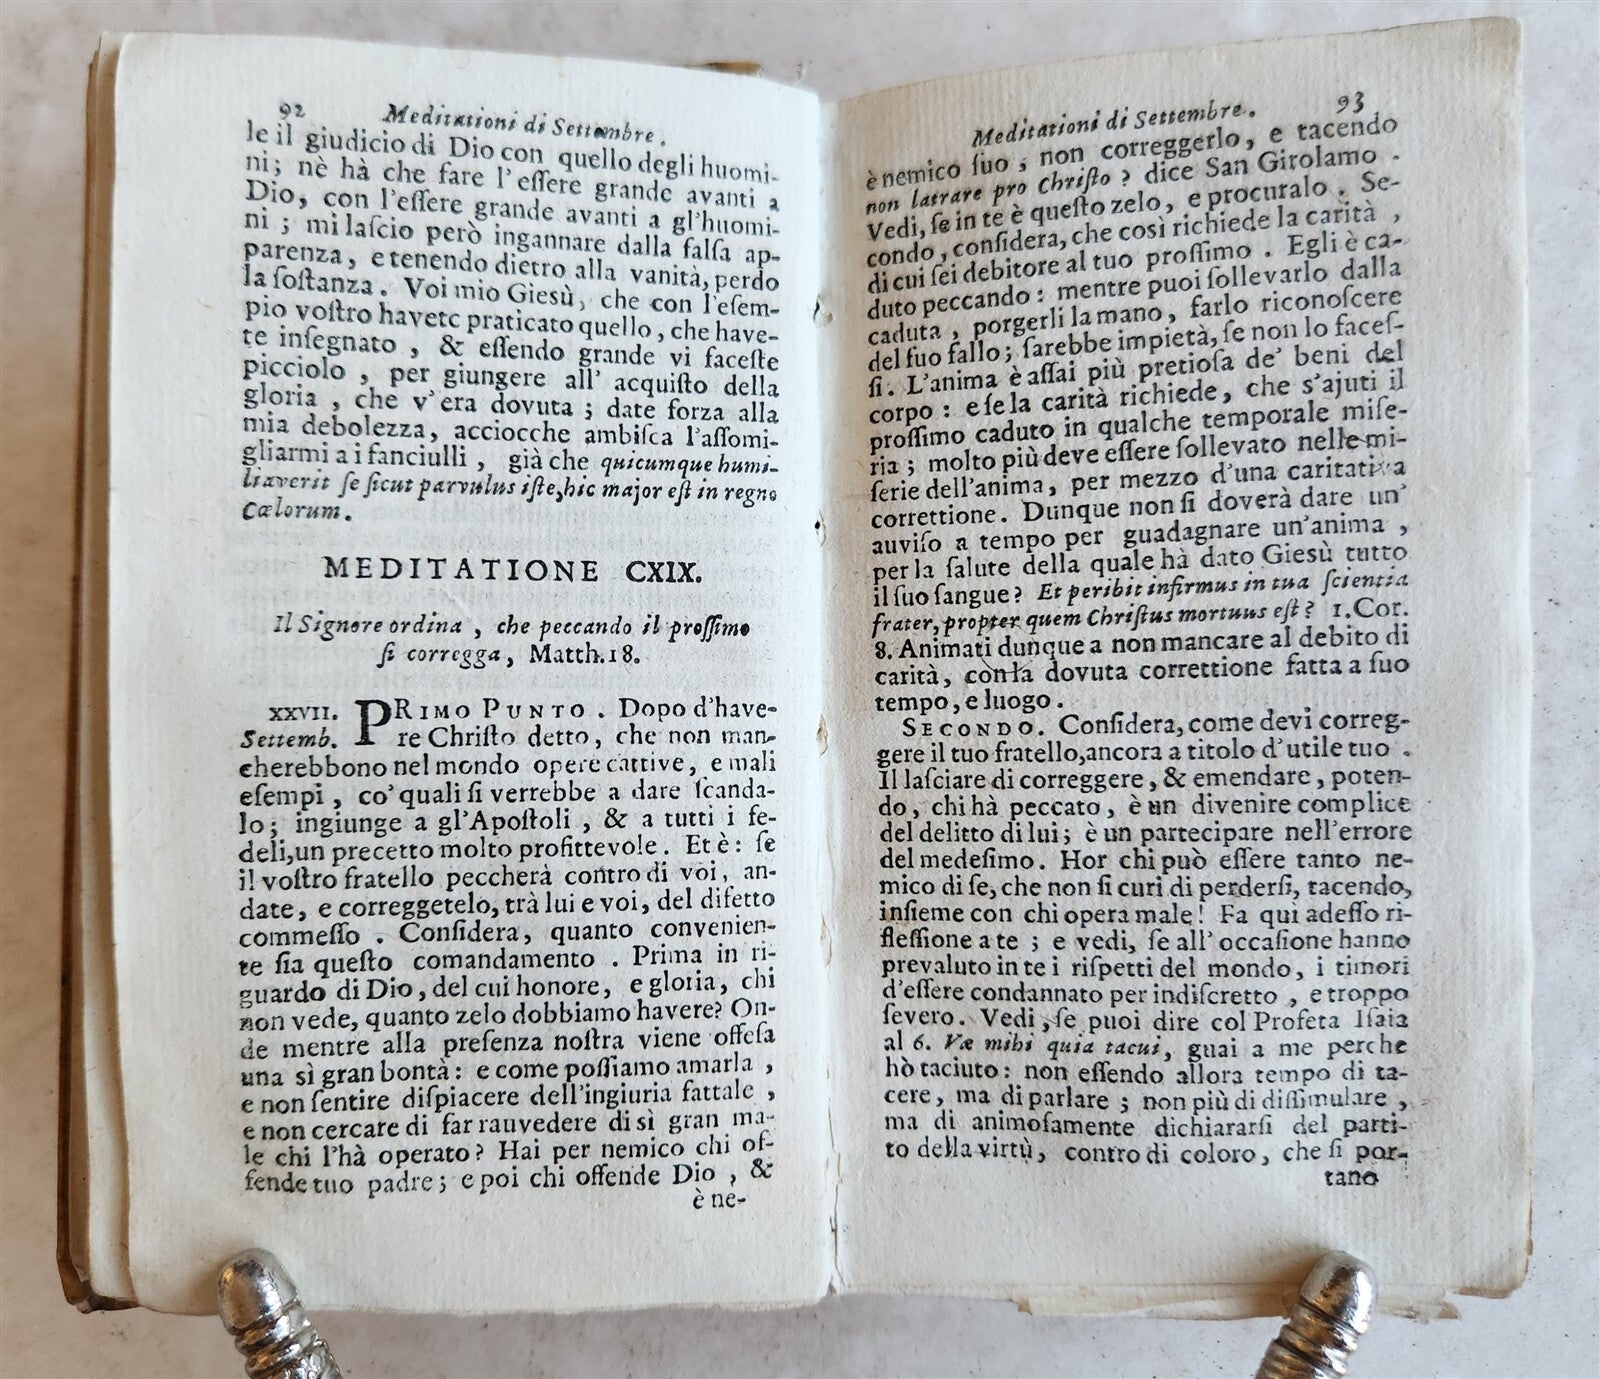 92 Meditationi di Settembre.
le il giudicio di Dio con quello degli huomi-
ni; nè hà che fare l'eſſere grande avanti a
Dio, con l'eſſere grande avanti a gl'huomi-
ni; mi laſcio però ingannare dalla falſa ap-
parenza, e tenendo dietro alla vanità, perdo
la ſoſtanza. Voi mio Giesù, che con l'eſem-
pio voſtro havete praticato quello, che have-
te inſegnato, & eſſendo grande vi faceſte
picciolo, per giungere all' acquiſto della
gloria, che v'era dovuta; date forza alla
mia debolezza, acciocche ambiſca l'aſſomi-
gliarmi a i fanciulli, già che quicumque humi-
liaverit ſe ſicut parvulus iſte, hic major eſt in regno
Cælorum.
MEDITATIONE CXIX.
Il Signore ordina, che peccando il proſſimo
ſi corregga, Matth. 18.
XXVII. PRIMO PUNTO. Dopo d'have-
Settemb. re Chriſto detto, che non man-
cherebbono nel mondo opere cattive, e mali
eſempi, co' quali ſi verrebbe a dare ſcanda-
lo; ingiunge a gl'Apoſtoli, & a tutti i fe-
deli, un precetto molto profittevole. Et è: ſe
il voſtro fratello peccherà contro di voi, an-
date, e correggetelo, trà lui e voi, del difetto
commeſſo. Conſidera, quanto convenien-
te ſia queſto comandamento. Prima in ri-
guardo di Dio, del cui honore, e gloria, chi
non vede, quanto zelo dobbiamo havere? On-
de mentre alla preſenza noſtra viene offeſa
una sì gran bontà: e come poſſiamo amarla,
e non ſentire diſpiacere dell'ingiuria fattale,
e non cercare di far rauvedere di sì gran ma-
le chi l'hà operato? Hai per nemico chi of-
fende tuo padre; e poi chi offende Dio, &
è ne-
Meditationi di Settembre. 93
è nemico ſuo, non correggerlo, e tacendo
non latrare pro Chriſto? dice San Girolamo.
Vedi, ſe in te è queſto zelo, e procuralo. Se-
condo, conſidera, che così richiede la carità,
di cui ſei debitore al tuo proſſimo. Egli è ca-
duto peccando: mentre puoi ſollevarlo dalla
caduta, porgerli la mano, farlo riconoſcere
del ſuo fallo; ſarebbe impietà, ſe non lo faceſ-
ſi. L'anima è aſſai più pretioſa de' beni del
corpo: e ſe la carità richiede, che s'ajuti il
proſſimo caduto in qualche temporale miſe-
ria; molto più deve eſſere ſollevato nelle mi-
ſerie dell'anima, per mezzo d'una caritativa
correttione. Dunque non ſi doverà dare un'
auviſo a tempo per guadagnare un'anima,
per la ſalute della quale hà dato Giesù tutto
il ſuo ſangue? Et peribit infirmus in tua ſcientia
frater, propter quem Chriſtus mortuus eſt? 1. Cor.
8. Animati dunque a non mancare al debito di
carità, con la dovuta correttione fatta a ſuo
tempo, e luogo.
SECONDO. Conſidera, come devi correg-
gere il tuo fratello, ancora a titolo d'utile tuo.
Il laſciare di correggere, & emendare, poten-
do, chi hà peccato, è un divenire complice
del delitto di lui; è un partecipare nell'errore
del medeſimo. Hor chi può eſſere tanto ne-
mico di ſe, che non ſi curi di perderſi, tacendo,
inſieme con chi opera male! Fa qui adeſſo ri-
fleſſione a te; e vedi, ſe all' occaſione hanno
prevaluto in te i riſpetti del mondo, i timori
d'eſſere condannato per indiſcretto, e troppo
ſevero. Vedi, ſe puoi dire col Profeta Iſaia
al 6. Væ mihi quia tacui, guai a me perche
hò taciuto: non eſſendo allora tempo di ta-
cere, ma di parlare; non più di diſſimulare,
ma di animoſamente dichiararſi del parti-
to della virtù, contro di coloro, che ſi por-
tano